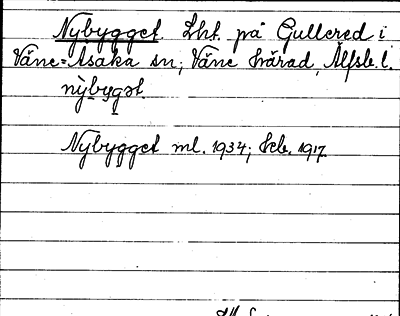 Nybygget. Lht. på Gullered i
Väne-Åsaka sn, Väne härad, Älfsb. l.
nỳbygət.
Nybygget ml. 1934; Skb. 1917.